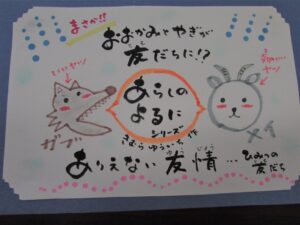 まさか!!
おおかみとやぎが
友だちに!?
いいヤツ!
あらしの
よるに
シリーズ
きむら ゆういち 作
ガブ
メイ
ありえない友情…ひみつの
友だち